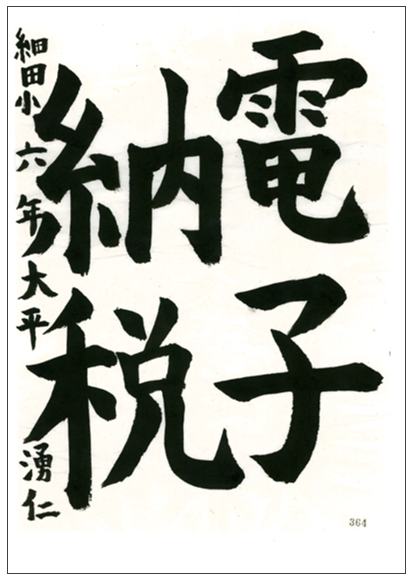 電子
納税
細田小 六年 大平 湧仁
364